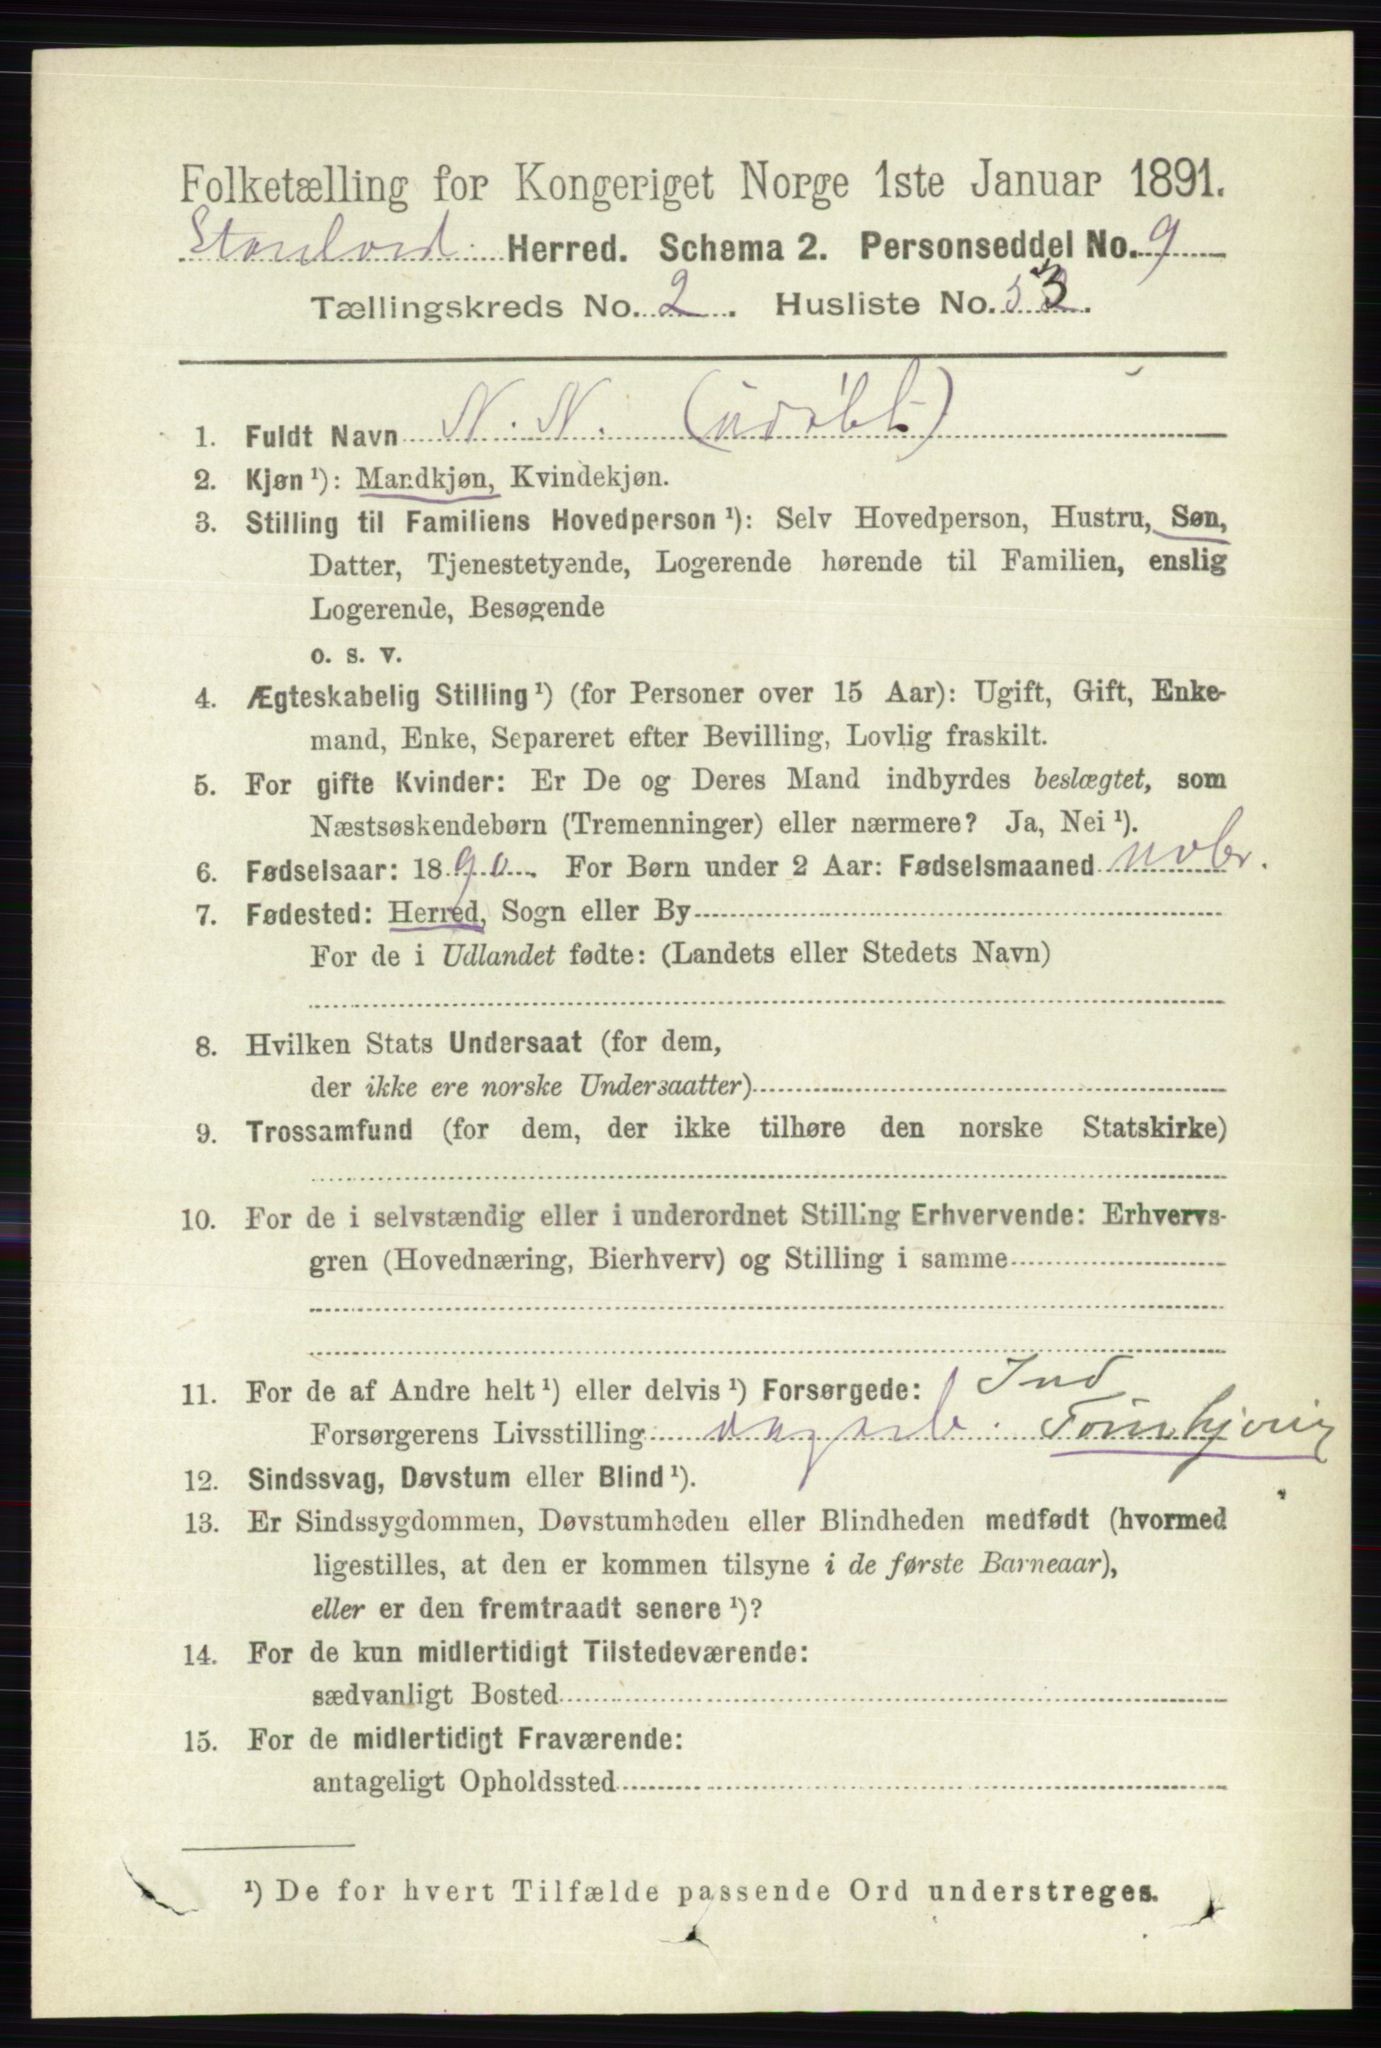 Folketælling for Kongeriget Norge 1ste Januar 1891.
Herred. Schema 2. Personseddel No. 9
Tællingskreds No. 2. Husliste No. 53.
1. Fuldt Navn N. N. (udøbt)
2. Kjøn ¹): Mandkjøn, Kvindekjøn.
3. Stilling til Familiens Hovedperson ¹): Selv Hovedperson, Hustru, Søn,
Datter, Tjenestetyende, Logerende hørende til Familien, enslig
Logerende, Besøgende
o. s. v.
4. Ægteskabelig Stilling ¹) (for Personer over 15 Aar): Ugift, Gift, Enke-
mand, Enke, Separeret efter Bevilling, Lovlig fraskilt.
5. For gifte Kvinder: Er De og Deres Mand indbyrdes beslægtet, som
Næstsøskendebørn (Tremenninger) eller nærmere? Ja, Nei ¹).
6. Fødselsaar: 1890. For Børn under 2 Aar: Fødselsmaaned novbr.
7. Fødested: Herred, Sogn eller By
For de i Udlandet fødte: (Landets eller Stedets Navn)
8. Hvilken Stats Undersaat (for dem,
der ikke ere norske Undersaatter)
9. Trossamfund (for dem, der ikke tilhøre den norske Statskirke)
10. For de i selvstændig eller i underordnet Stilling Erhvervende: Erhvervs-
gren (Hovednæring, Bierhverv) og Stilling i samme
11. For de af Andre helt ¹) eller delvis ¹) Forsørgede: Ind
Forsørgerens Livsstilling dagarb.
12. Sindssvag, Døvstum eller Blind ¹).
13. Er Sindssygdommen, Døvstumheden eller Blindheden medfødt (hvormed
ligestilles, at den er kommen tilsyne i de første Barneaar),
eller er den fremtraadt senere ¹)?
14. For de kun midlertidigt Tilstedeværende:
sædvanligt Bosted
15. For de midlertidigt Fraværende:
antageligt Opholdssted
¹) De for hvert Tilfælde passende Ord understreges.